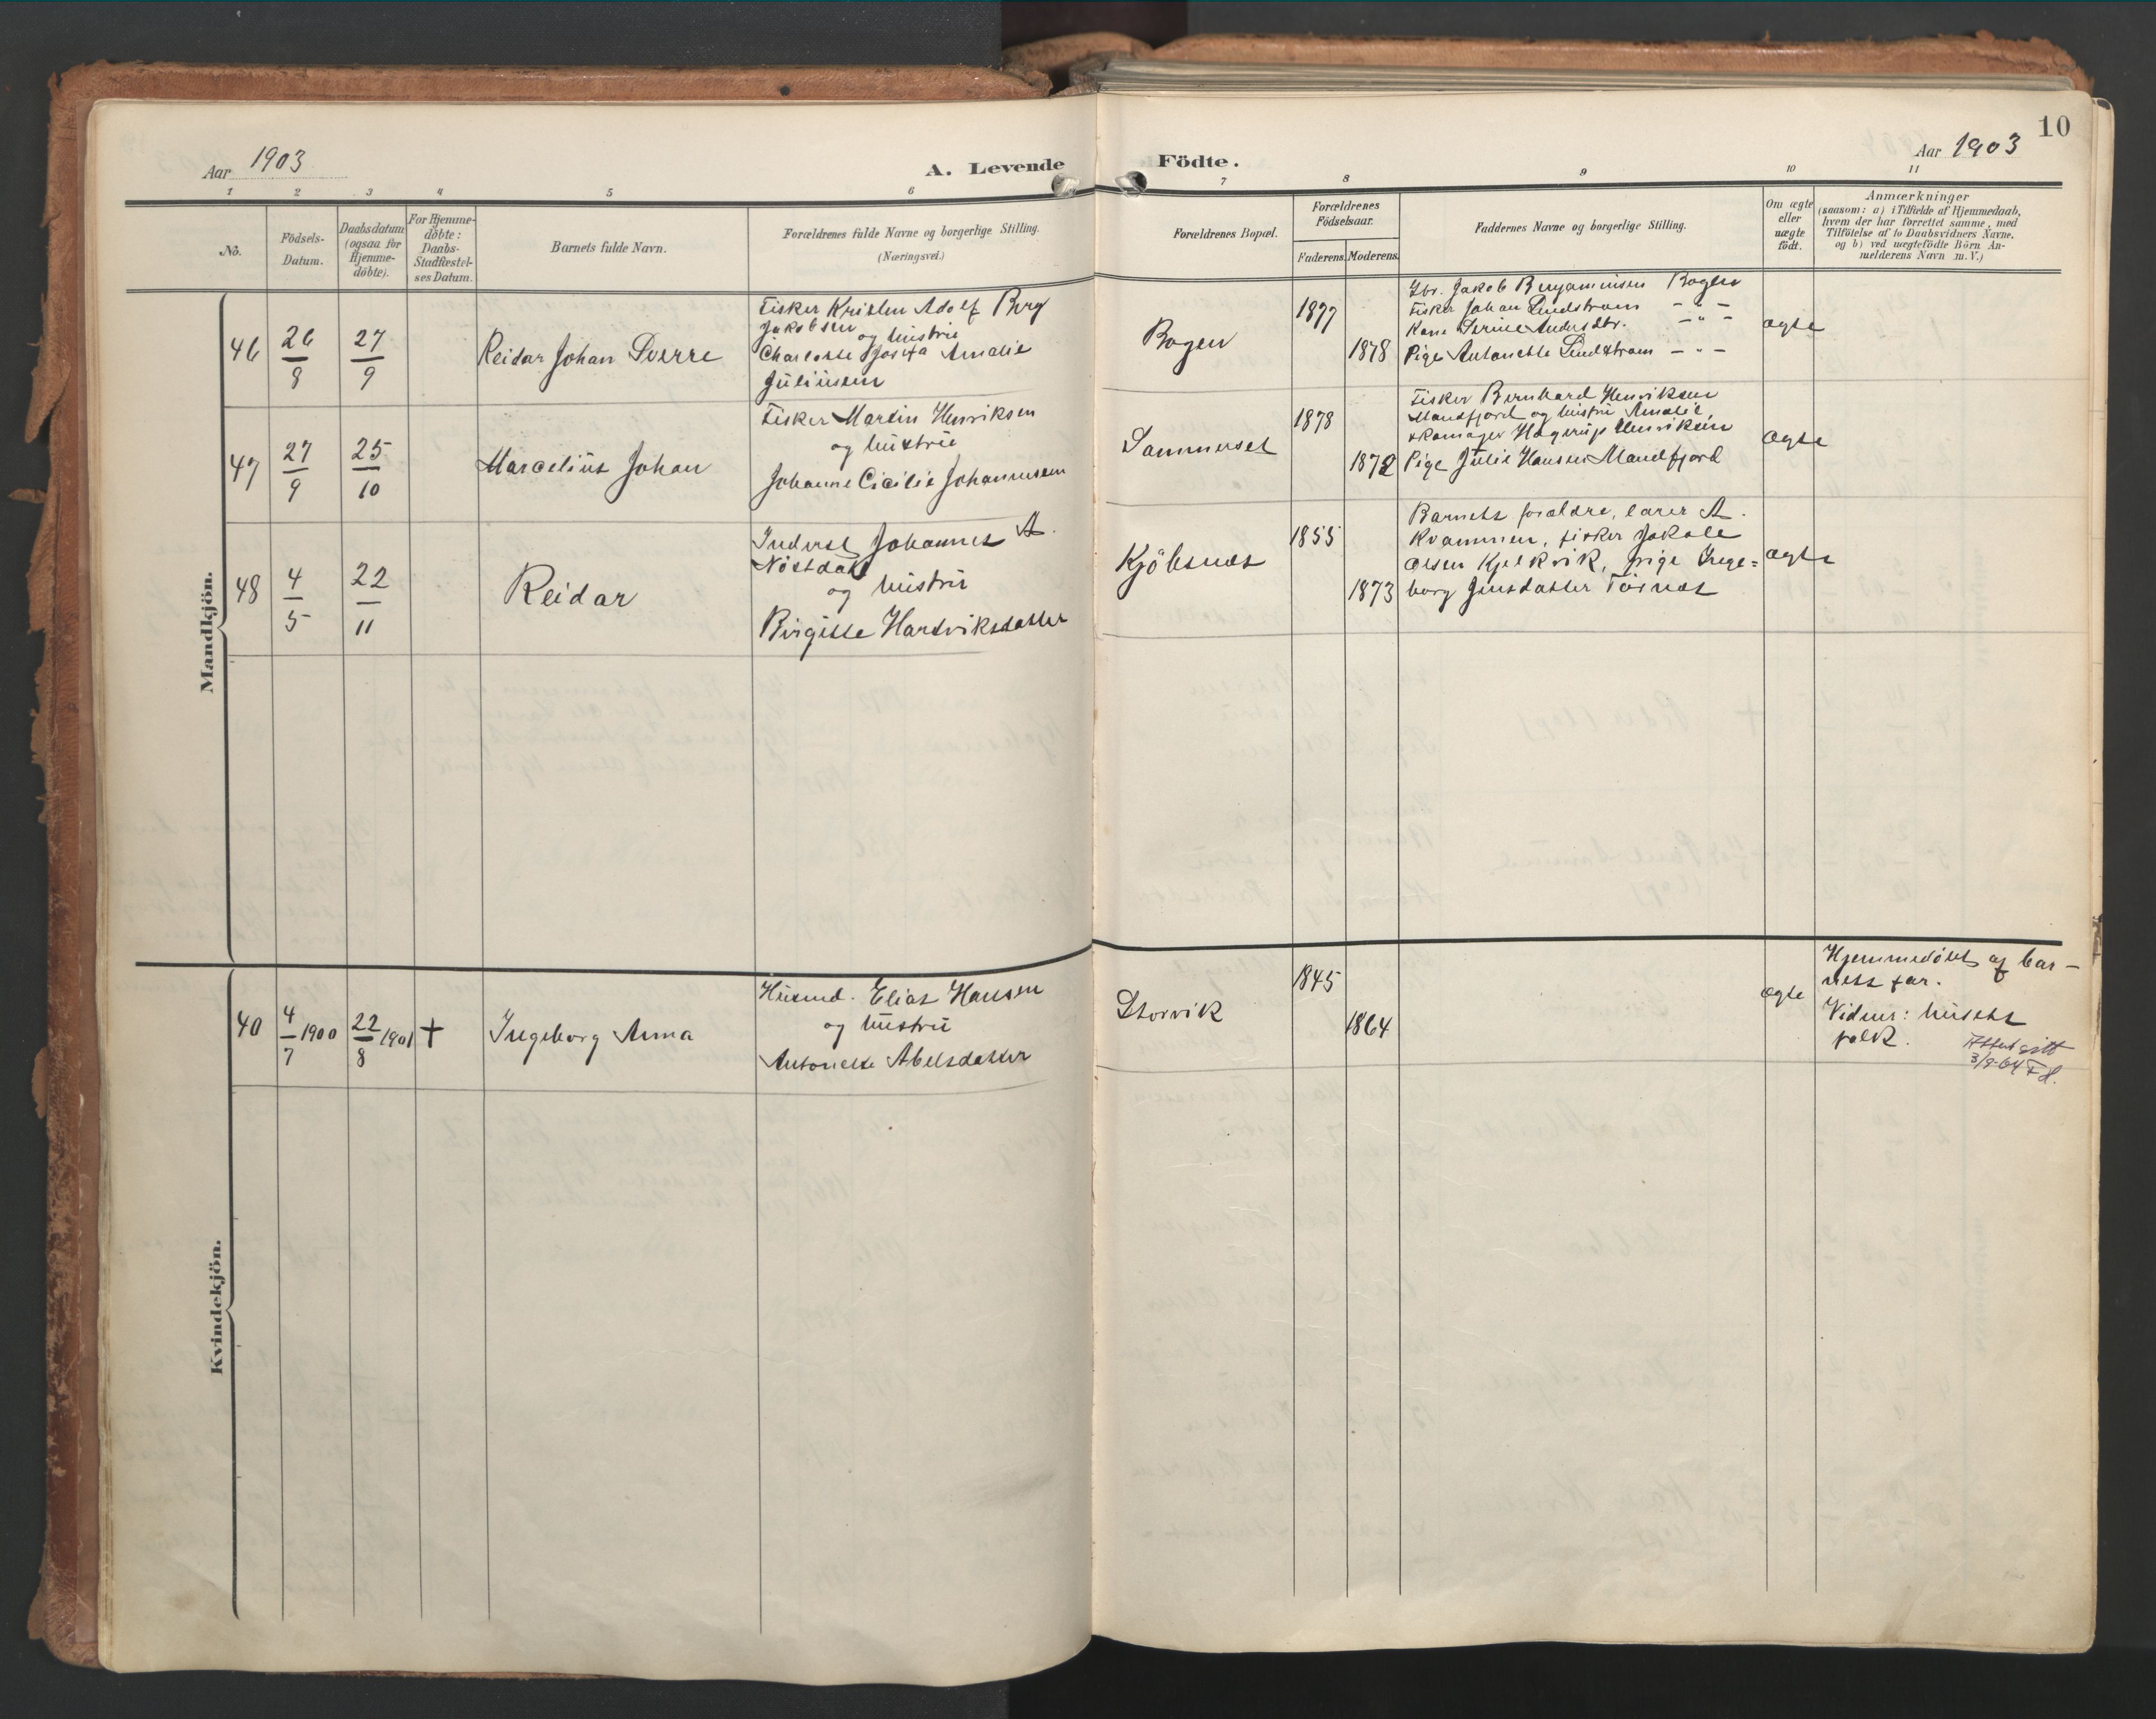 10
Aar 1903
A. Levende Födte.
Aar 1903
1 2 3 4 5 6 7 8 9 10 11
No.
Födsels-
Datum.
Daabsdatum
(ogsaa for
Hjemme-
döbte).
For Hjemme-
döbte:
Daabs-
Stadfæstel-
ses Datum.
Barnets fulde Navn.
Forældrenes fulde Navne og borgerlige Stilling.
(Næringsvei.)
Forældrenes Bopæl.
Forældrenes
Födselsaar.
Faderens.
Moderens.
Faddernes Navne og borgerlige Stilling.
Om ægte
eller
uægte
födt.
Anmærkninger
(saasom: a) i Tilfælde af Hjemmedaab,
hvem der har forrettet samme, med
Tilföielse af to Daabsvidners Navne,
og b) ved uægtefödte Börn An-
melderens Navn m. V.)
Mandkjön.
46
26
8
27
9
Reidar Johan Sverre
Fisker Kristen Adolf Berg
Jakobsen
og hustru
Charlotte Josefa Amalie
Juliussen
Bogen
1877
1878
Gbr. Jakob Benjaminsen Bogen
Fisker Johan Lindstrøm - " -
Kone Serine Andersdtr. - " -
Pige Antonette Lindstrøm - " -
ægte
47
27
9
25
10
Marcelius Johan
Fisker Martin Henriksen
og hustru
Johanne Cicilie Johannessen
Sommerset
1878
1872
Fisker Bernhard Henriksen
Mandfjord og hustru Amalie,
skomager Hagerup Henriksen
Pige Julie Hansen Mandfjord
ægte
48
4
5
22
11
Reidar
Inderst Johannes A.
Nöstdahl
og hustru
Birgitte Hartviksdatter
Kjöbsnæs
1855
1873
Barnets forældre, lærer A.
Kvammen, fisker Jakob
Olsen Kjelkvik, pige Inge=
borg Jensdatter Törnæs
ægte
Kvindekjön.
40
4
7
1900
22
8
1901
+
Ingeborg Anna
Husmd. Elias Hansen
og hustru
Antonette Abelsdatter
Storvik
1845
1864
ægte
Hjemmedöbt af bar-
nets far.
Vidner: husets
folk.
Attest gitt